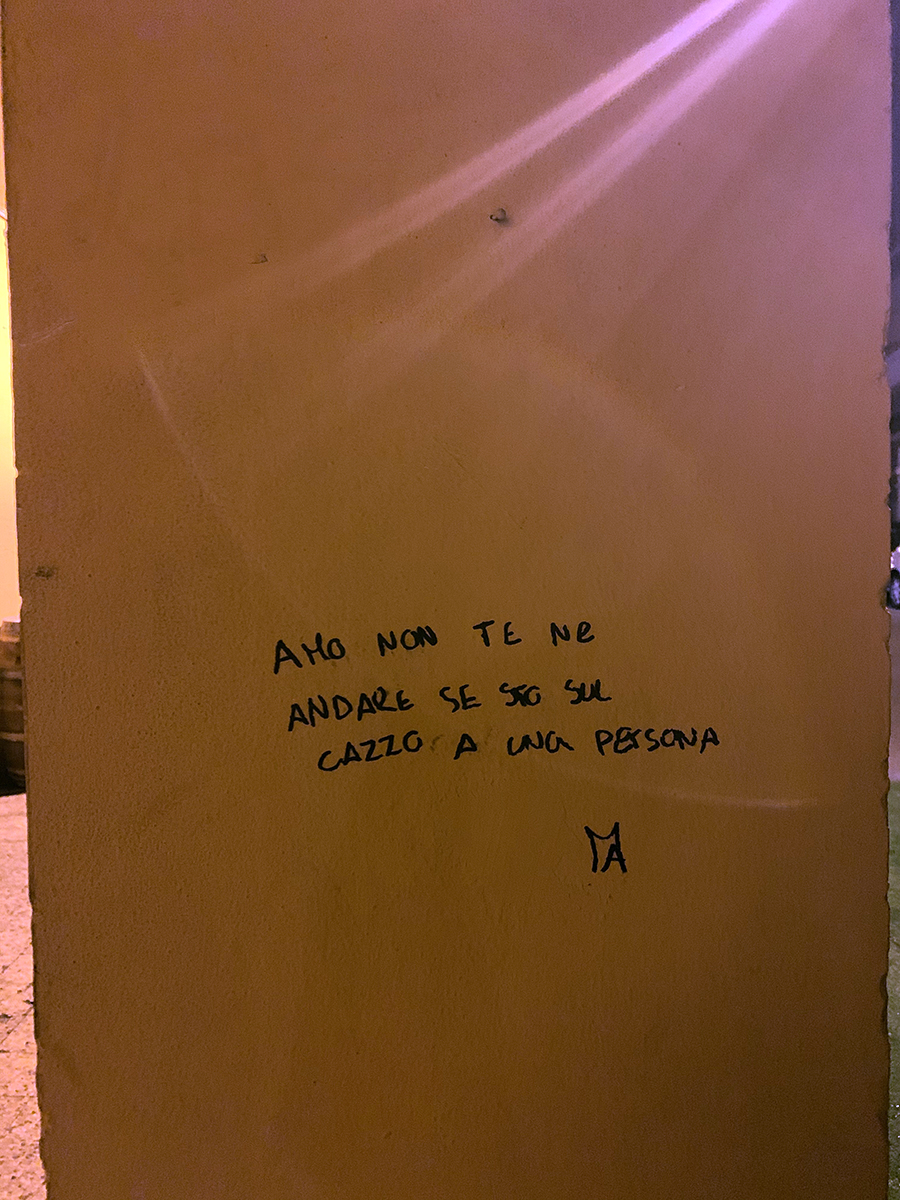 AMO NON TE NE
ANDARE SE STO SUL
CAZZO A UNA PERSONA
MA